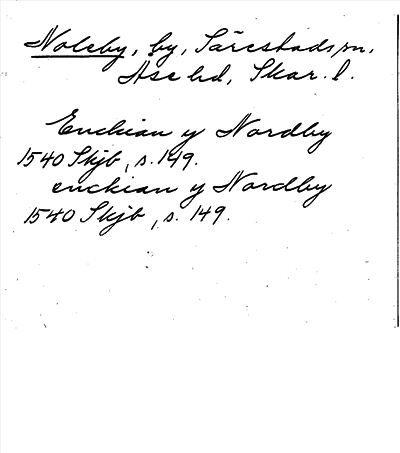 Noleby, by, Särestads sn,
Åse hd, Skar. l.
Enckian y Nordby
1540 Skjb, s. 149.
enckian y Nordby
1540 Skjb, s. 149.